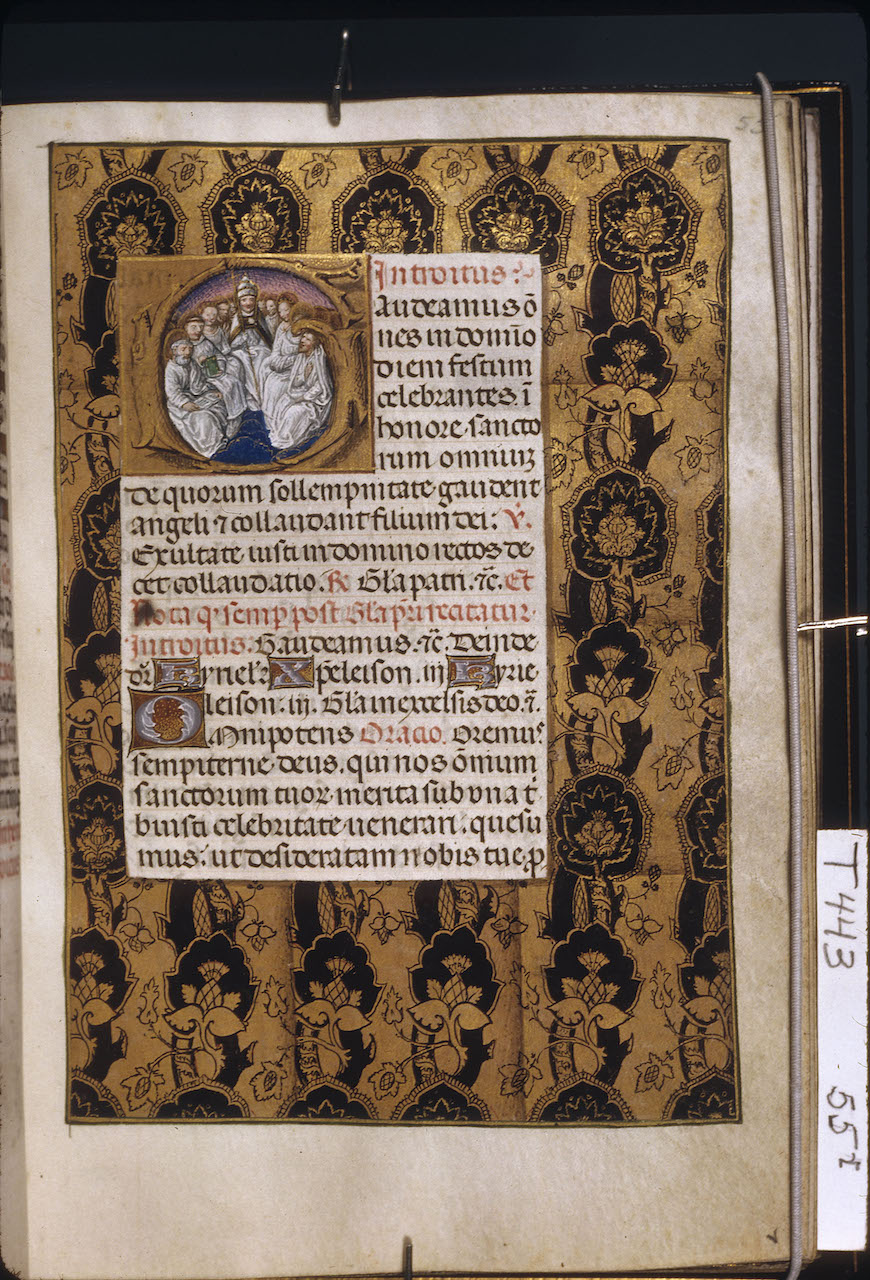 Introitus:
Gaudeamus õ
nes in domĩo
diem festum
celebrantes ĩ
honore sancto
rum omniuꝫ
de quorum sollempnitate gaudent
angeli ⁊ collaudant filium dei: V.
Exultate iusti in domino rectos de
cet collaudatio. R Gl'a patri. ⁊c̃. Et
Nota q' semp̱ post Gl'a pr̃i recitatur
Introitus. Gaudeamus. ⁊c̃. Deinde
dr̃ Kyriel'r Xp̃eleison. iij Kyrie
eleison. iij. Gl'a in excelsis deo. ⁊̃.
Omnipotens Oracio. Oremus
sempiterne deus. qui nos õnium
sanctorum tuoꝝ merita sub vna t
buisti celebritate uenerari: quesu
mus: ut desideratam nobis tue ꝓ
T443
55r